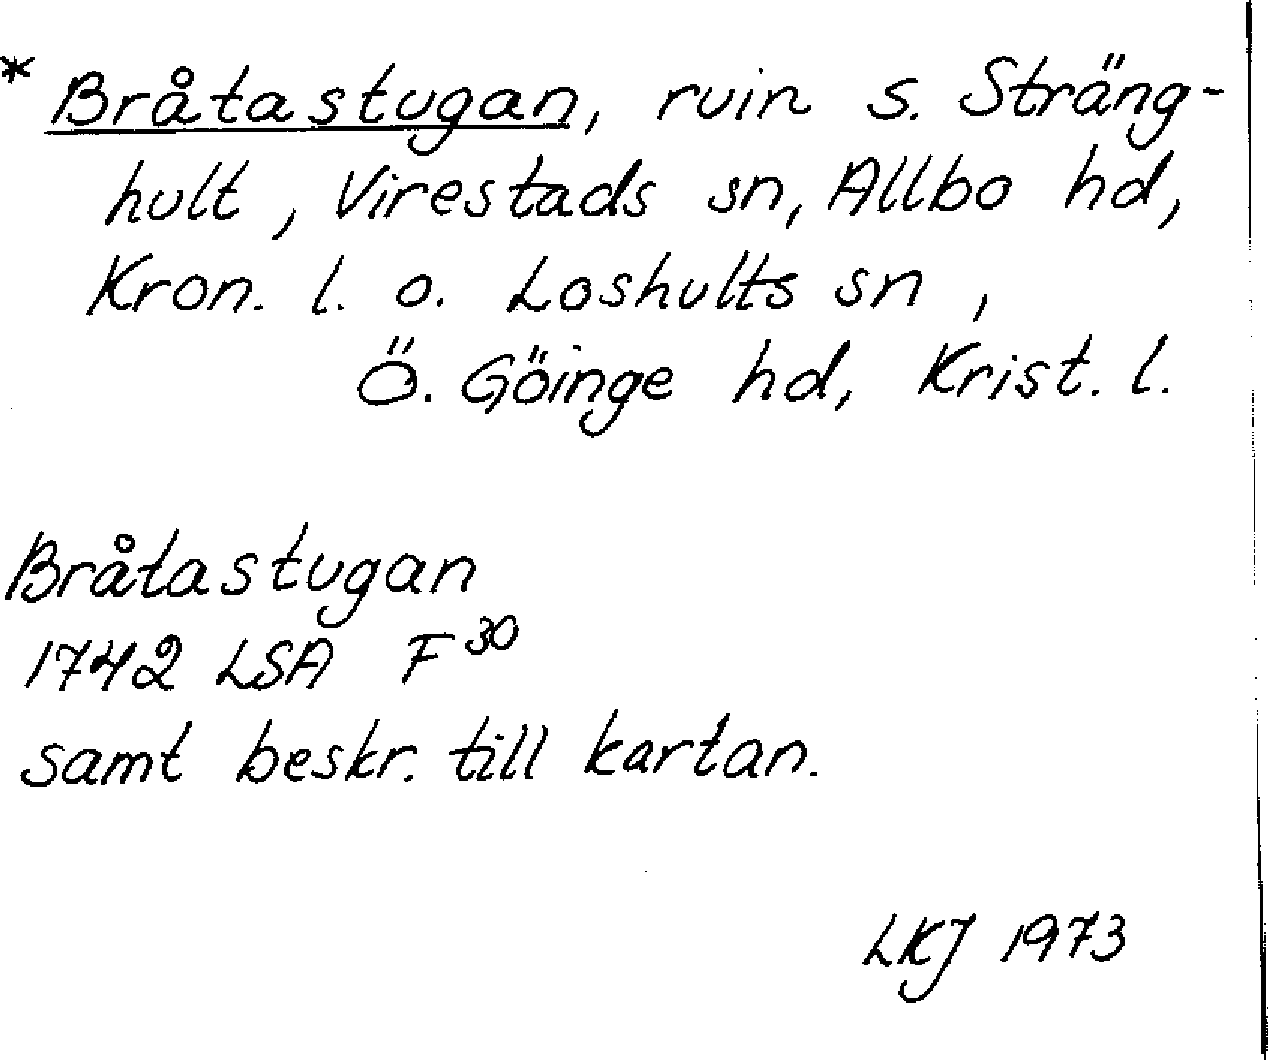 * Bråtastugan, ruin s. Sträng-
hult, Virestads sn, Allbo hd,
Kron. l. o. Loshults sn,
Ö. Göinge hd, Krist. l.
Bråtastugan
1742 LSA F³⁰
samt beskr. till kartan.
LKJ 1973